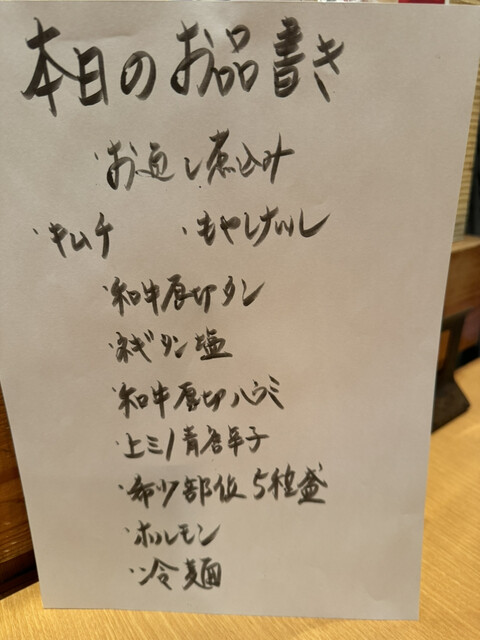 本日のお品書き
・お通し煮込み
・キムチ ・もやしナムル
・和牛厚切タン
・ネギタン塩
・和牛厚切ハラミ
・上ミノ青唐辛子
・希少部位5種盛
・ホルモン
・冷麺